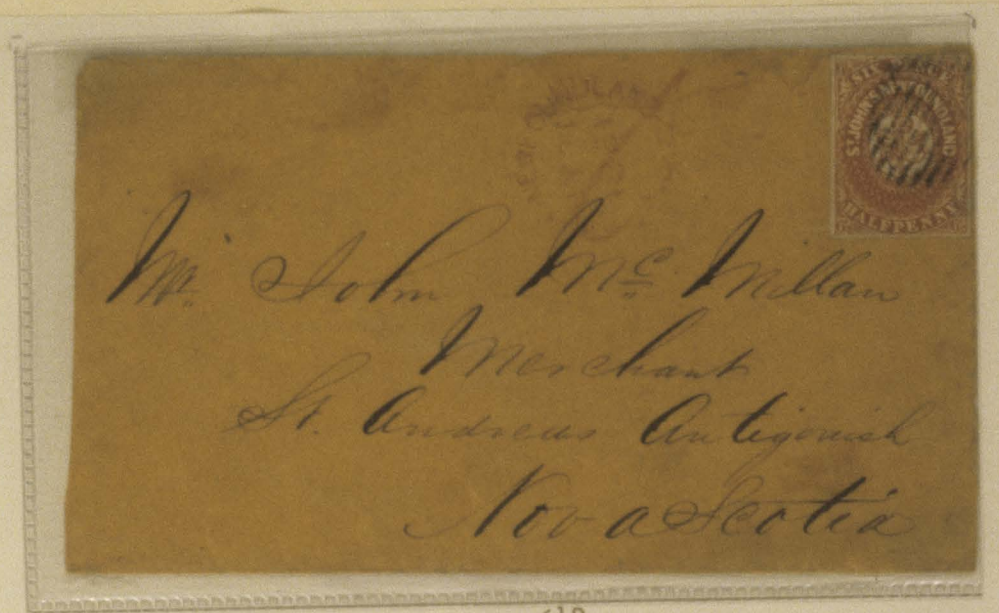 SIX PENCE
ST JOHN'S NEWFOUNDLAND
HALFPENNY
Mr. John Mc Millan
Merchant
St. Andrews Antigonish
Nova Scotia